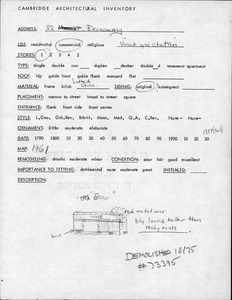 CAMBRIDGE ARCHITECTURAL INVENTORY
ADDRESS: 82 Broadway
USE: residential commercial religious
STORIES: 1 2 3 4 5
TYPE: single double row duplex decker double d. tenement apartment
ROOF: hip gable front gable flank mansard flat
MATERIAL: frame brick stone SIDING: original subsequent
PLACEMENT: narrow to street broad to street square
ENTRANCE: flank front side front center
STYLE: None
ORNAMENT: little moderate elaborate
DATE: 1790 1800 10 20 30 40 50 60 70 80 90 1900 10 20 30
MAP: 1961
REMODELING: drastic moderate minor CONDITION: poor fair good excellent
IMPORTANCE TO SETTING: detrimental none moderate great INITIALED:
DESCRIPTION:
"Esso"
looks better than
really exists
DEMOLISHED 10/75
#73395